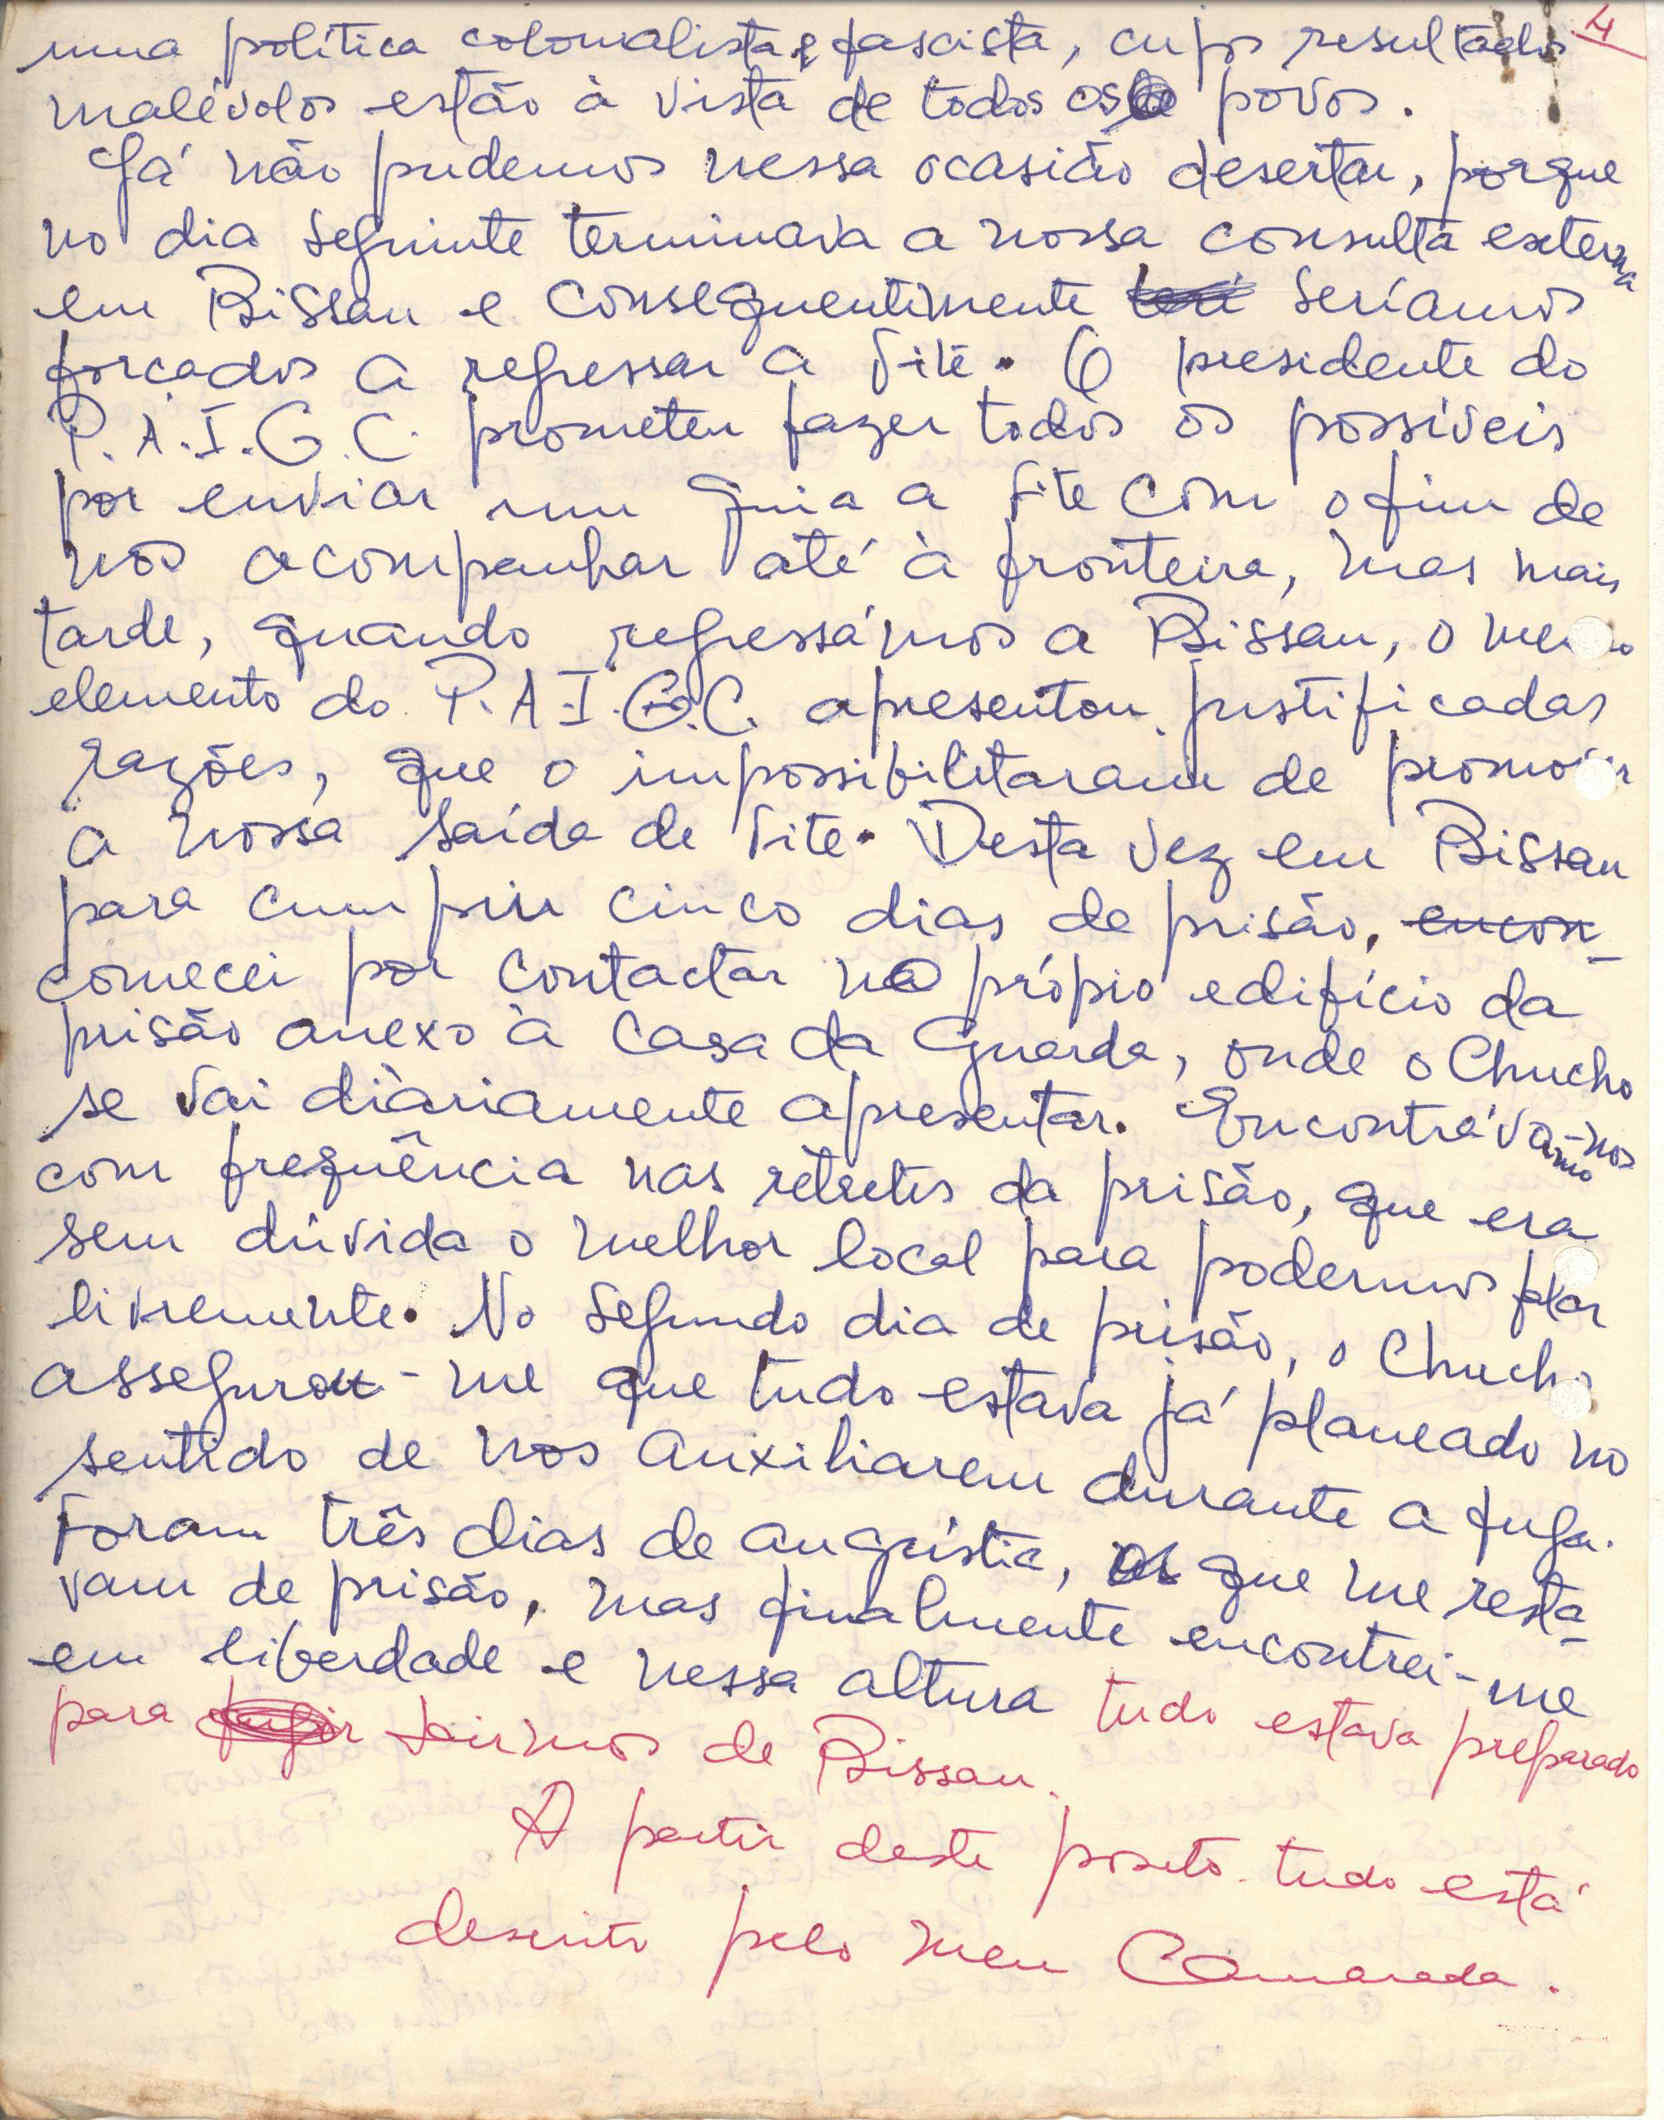 4
uma política colonialista e fascista, cujos resultados
malévolos estão à vista de todos os povos.
Já não pudemos nessa ocasião desertar, porque
no dia seguinte terminava a nossa consulta externa
em Bissau e consequentimente seríamos
forçados a regressar a Tite. O presidente do
P.A.I.G.C. prometeu fazer todos os possíveis
por enviar um guia a Tite com o fim de
nos acompanhar até à fronteira, mas mais
tarde, quando regressámos a Bissau, o
elemento do P.A.I.G.C. apresentou justificadas
razões, que o impossibilitaram de
a nossa saída de Tite. Desta vez em Bissau
para cumprir cinco dias de prisão, encon-
comecei por contactar no própio edifício da
prisão anexo à Casa da Guarda, onde o Chucho
se vai diàriamente apresentar. Encontrávamo-nos
com freqüência nas retretes da prisão, que era
sem dúvida o melhor local para podermos falar
livremente. No segundo dia de prisão, o Chucho
assegurou-me que tudo estava já planeado no
sentido de nos auxiliarem durante a fuga.
Foram três dias de angústia, os que me resta-
vam de prisão, mas finalmente encontrei-me
em liberdade e nessa altura tudo estava preparado
para fugir sairmos de Bissau.
A partir deste ponto tudo está
descrito pelo meu Camarada.